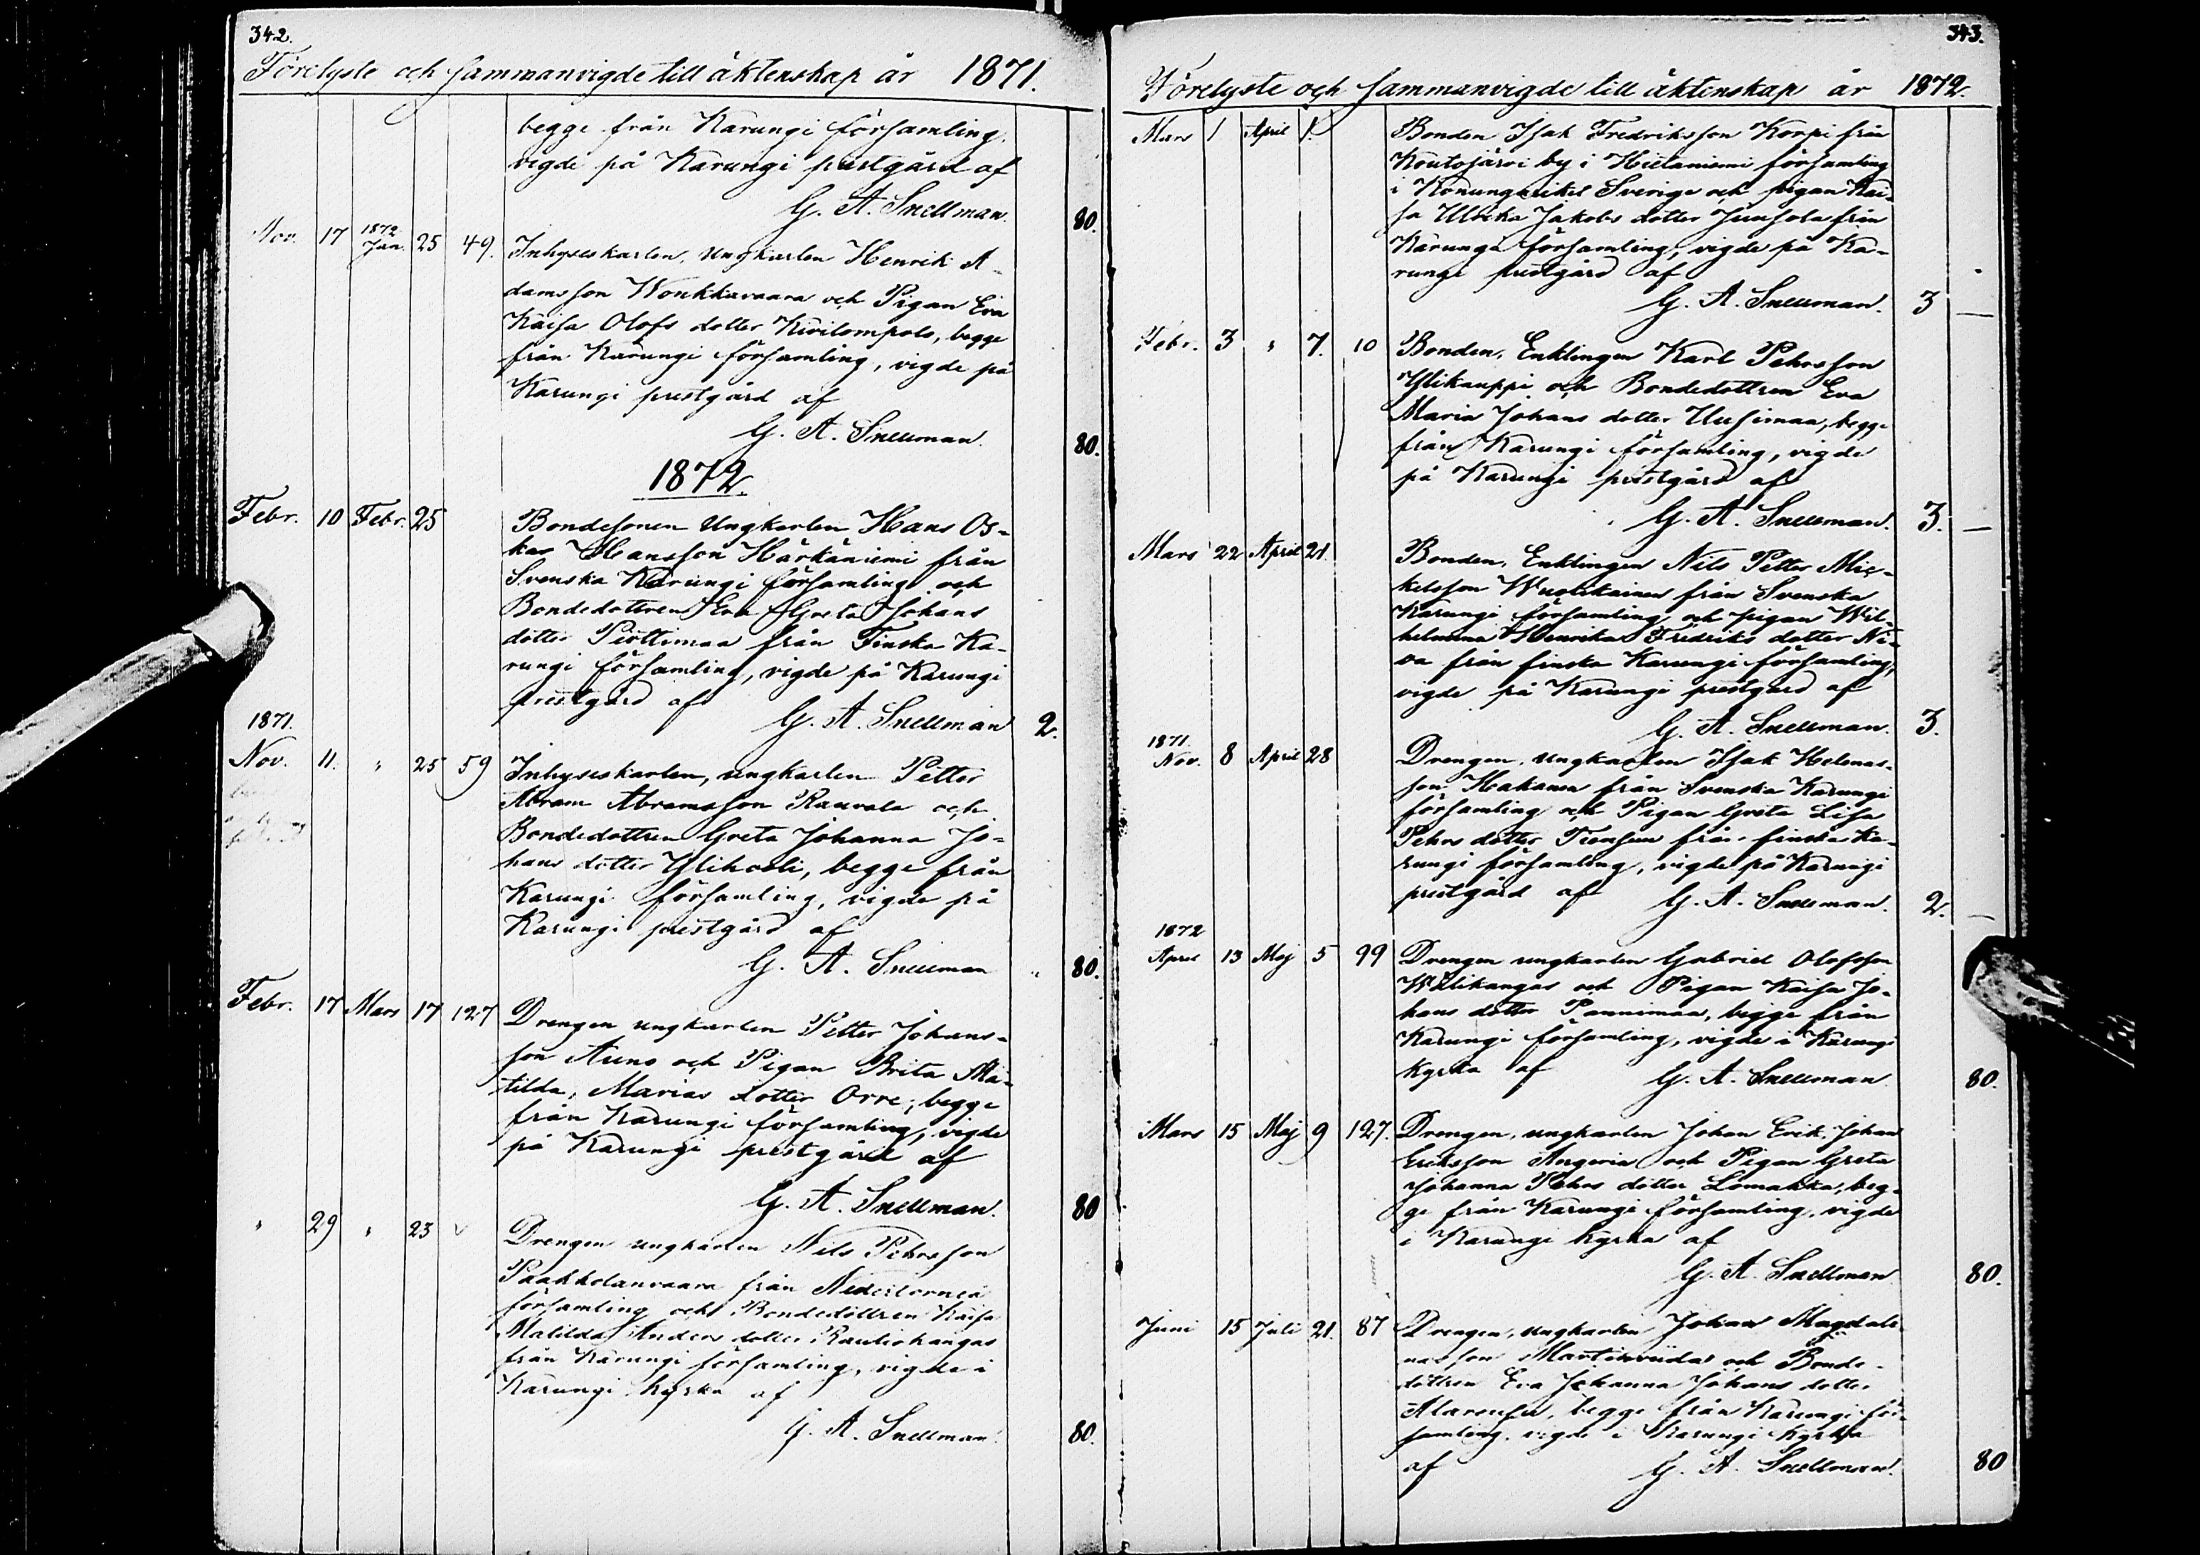 342.
Förelyste och sammanvigde till äktenskap år 1871.
begge från Karungi församling,
vigde på Karungi prestgård af
G. A. Snellman. 80.
Nov. 17 1872 Jan. 25 49. Inhyseskarlen, ungkarlen Henrik A-
damsson Wonkkavaara och Pigan Eva
Kaisa Olofs dotter Kivilompolo, begge
från Karungi församling, vigde på
Karungi prestgård af
G. A. Snellman. 80.
1872.
Febr. 10 Febr. 25 Bondesonen Ungkarlen Hans Os-
kar Hansson Härkäniemi från
Svenska Karungi församling och
Bondedottren Eva Greta Johans
dotter Piottimaa från Finska Ka-
rungi församling, vigde på Karungi
prestgård af G. A. Snellman 2.
1871.
Nov. 11. " 25 59 Inhyseskarlen, ungkarlen Petter
Abram Abramsson Rauvala och
Bondedottren Greta Johanna Jo-
hans dotter Ylihooli, begge från
Karungi församling, vigde på
Karungi prestgård af
G. A. Snellman " 80.
Febr. 17 Mars 17 127 Drengen ungkarlen Petter Johans-
son Auno och Pigan Brita Ma-
tilda, Marias dotter Orre, begge
från Karungi församling, vigde
på Karungi prestgård af
G. A. Snellman. 80
" 29 " 23 Drengen ungkarlen Nils Pehrsson
Paakkolanvaara från Nedertorneå
församling och Bondedottren Kaisa
Matilda Anders dotter Rautiokangas
från Karungi församling, vigde i
Karungi kyrka af
G. A. Snellman. 80.
343.
Förelyste och sammanvigde till äktenskap år 1872.
Mars 1 April 1. Bonden Isak Fredriksson Korpi från
Koutojärvi by i Hietaniemi församling
i Konungariket Sverige och pigan Kai-
sa Ulrika Jakobs dotter Juusola från
Karungi församling, vigde på Ka-
rungi prestgård af
G. A. Snellman. 3 —
Febr. 3 " 7. 10 Bonden, Enklingen Karl Pehrsson
Ylikauppi och Bondedottren Eva
Maria Johans dotter Uusimaa, begge
från Karungi församling, vigde
på Karungi prestgård af
G. A. Snellman. 3. —
Mars 22 April 21. Bonden, Enklingen Nils Petter Mic-
kelsson Wuolikainen från Svenska
Karungi församling och pigan Wil-
helmina Henrika Fredriks dotter Ni-
va från finska Karungi församling,
vigde på Karungi prestgård af
G. A. Snellman. 3.
1871.
Nov. 8 April 28 Drengen, ungkarlen Isak Helenas-
son Hakanen från Svenska Karungi
församling och Pigan Greta Lisa
Pehrs dotter från finska Ka-
rungi församling, vigde på Karungi
prestgård af G. A. Snellman. 2. —
1872
April 13 Maj 5 99 Drengen ungkarlen Gabriel Olofsson
Wälikangas och Pigan Kaisa Jo-
hans dotter Pannimaa, begge från
Karungi församling, vigde i Karungi
kyrka af G. A. Snellman 80.
Mars 15 Maj 9 127. Drengen, ungkarlen Johan Erik, Johan
Eriksson Angeria och Pigan Greta
Johanna Pehrs dotter Lomakka, beg-
ge från Karungi församling, vigde
i Karungi kyrka af
G. A. Snellman 80.
Juni 15 Juli 21. 87 Drengen, ungkarlen Johan Magdale-
nasson Martinviida och Bonde-
dottren Eva Johanna Johans dotter
Alarousu, begge från Karungi för-
samling, vigde i Karungi kyrka
af G. A. Snellman. 80